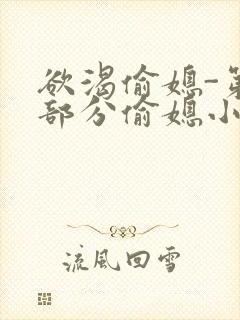 欲渴偷媳-第
部分偷媳小
流風回雪